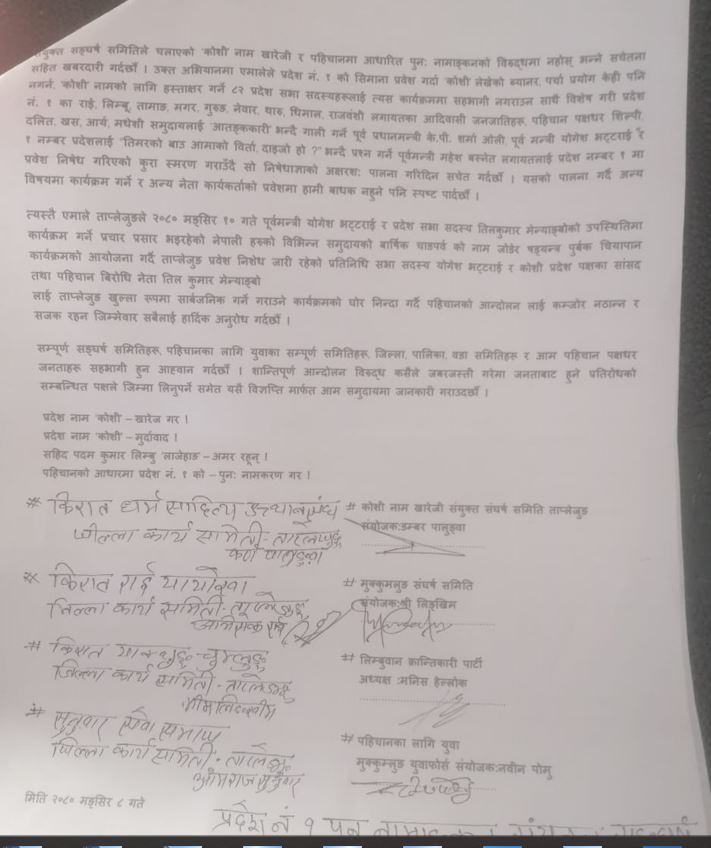 संयुक्त सङ्घर्ष समितिले चलाएको 'कोशी' नाम खारेजी र पहिचानमा आधारित पुन: नामाङ्कनको विरुद्धमा नहोस् भन्ने सचेतना
सहित खबरदारी गर्दछौं । उक्त अभियानमा एमालेले प्रदेश नं. १ को सिमाना प्रवेश गर्दा 'कोशी' लेखेको ब्यानर, पर्चा प्रयोग केही पनि
नगर्न, 'कोशी' नामको लागि हस्ताक्षर गर्ने ८२ प्रदेश सभा सदस्यहरूलाई त्यस कार्यक्रममा सहभागी नगराउन साथै विशेष गरी प्रदेश
नं. १ का राई, लिम्बू, तामाङ, मगर, गुरुङ, नेवार, थारु, धिमाल, राजवंशी लगायतका आदिवासी जनजातिहरू, पहिचान पक्षधर शिल्पी,
दलित, खस, आर्य, मधेशी समुदायलाई 'आतङ्ककारी' भन्दै गाली गर्ने पूर्व प्रधानमन्त्री के.पी. शर्मा ओली, पूर्व मन्त्री योगेश भट्टराई र
१ नम्बर प्रदेशलाई "तिमरको बाउ आमाको विर्ता, दाइजो हो ?" भन्दै प्रश्न गर्ने पूर्वमन्त्री महेश बस्नेत लगायतलाई प्रदेश नम्बर १ मा
प्रवेश निषेध गरिएको कुरा स्मरण गराउँदै सो निषेधाज्ञाको अक्षरश: पालना गरिदिन सचेत गर्दछौं । यसको पालना गर्दै अन्य
विषयमा कार्यक्रम गर्ने र अन्य नेता कार्यकर्ताको प्रवेशमा हामी बाधक नहुने पनि स्पष्ट पार्दछौं ।
त्यस्तै एमाले ताप्लेजुङले २०८० मङ्सिर १० गते पूर्वमन्त्री योगेश भट्टराई र प्रदेश सभा सदस्य तिलकुमार मेन्याङ्बोको उपस्थितिमा
कार्यक्रम गर्ने प्रचार प्रसार भइरहेको नेपाली हरुको विभिन्न समुदायको बार्षिक चाडपर्व को नाम जोडेर षड्यन्त्र पुर्बक चियापान
कार्यक्रमको आयोजना गर्दै ताप्लेजुङ प्रवेश निशेध जारी रहेको प्रतिनिधि सभा सदस्य योगेश भट्टराई र कोशी प्रदेश पक्षका सांसद
तथा पहिचान बिरोधि नेता तिल कुमार मेन्याङ्बो
लाई ताप्लेजुङ खुल्ला रूपमा सार्बजनिक गर्ने गराउने कार्यक्रमको घोर निन्दा गर्दै पहिचानको आन्दोलन लाई कम्जोर नठान्न र
सजक रहन जिम्मेवार सबैलाई हार्दिक अनुरोध गर्दछौं ।
सम्पूर्ण सङ्घर्ष समितिहरू, पहिचानका लागि युवाका सम्पूर्ण समितिहरू, जिल्ला, पालिका, वडा समितिहरू र आम पहिचान पक्षधर
जनताहरू सहभागी हुन आहवान गर्दछौं । शान्तिपूर्ण आन्दोलन विरुद्ध कसैले जबरजस्ती गरेमा जनताबाट हुने प्रतिरोधको
सम्बन्धित पक्षले जिम्मा लिनुपर्ने समेत यसै विज्ञप्ति मार्फत आम समुदायमा जानकारी गराउदछौं ।
प्रदेश नाम 'कोशी' – खारेज गर !
प्रदेश नाम 'कोशी' – मुर्दावाद !
सहिद पदम कुमार लिम्बु 'लाजेहाङ' – अमर रहून् !
पहिचानको आधारमा प्रदेश नं. १ को – पुन: नामकरण गर !
# किरात धर्म साहित्य उत्थान संघ
जिल्ला कार्य समिती- ताप्लेजुङ
# कोशी नाम खारेजी संयुक्त संघर्ष समिति ताप्लेजुङ
संयोजक:डम्बर पालुङ्वा
# किरात राई यायोक्खा
जिल्ला कार्य समिती- ताप्लेजुङ
# मुक्कुमलुङ संघर्ष समिति
संयोजक:श्री लिङ्खिम
# किरात याक्थुङ चुम्लुङ
जिल्ला कार्य समिती- ताप्लेजुङ
# लिम्बुवान क्रान्तिकारी पार्टी
अध्यक्ष :मनिस हेल्लोक
# सुनुवार सेवा समाज
जिल्ला कार्य समिती- ताप्लेजुङ
ओमराज सुनुवार
# पहिचानका लागि युवा
मुक्कुम्लुङ युवाफोर्स संयोजक:नवीन पोमु
मिति २०८० मङ्सिर ८ गते
प्रदेश नं १